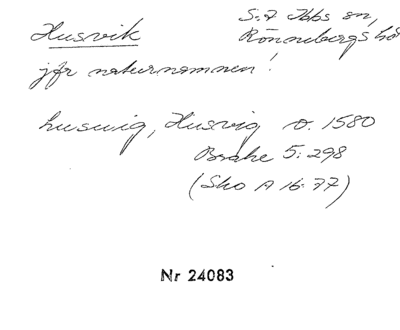 Husvik
S:t Ibbs sn,
Rönnebergs hd
jfr naturnamnen!
huswig, Husvig o. 1580
Brahe 5:298
(Sko A 16:77)
Nr 24083